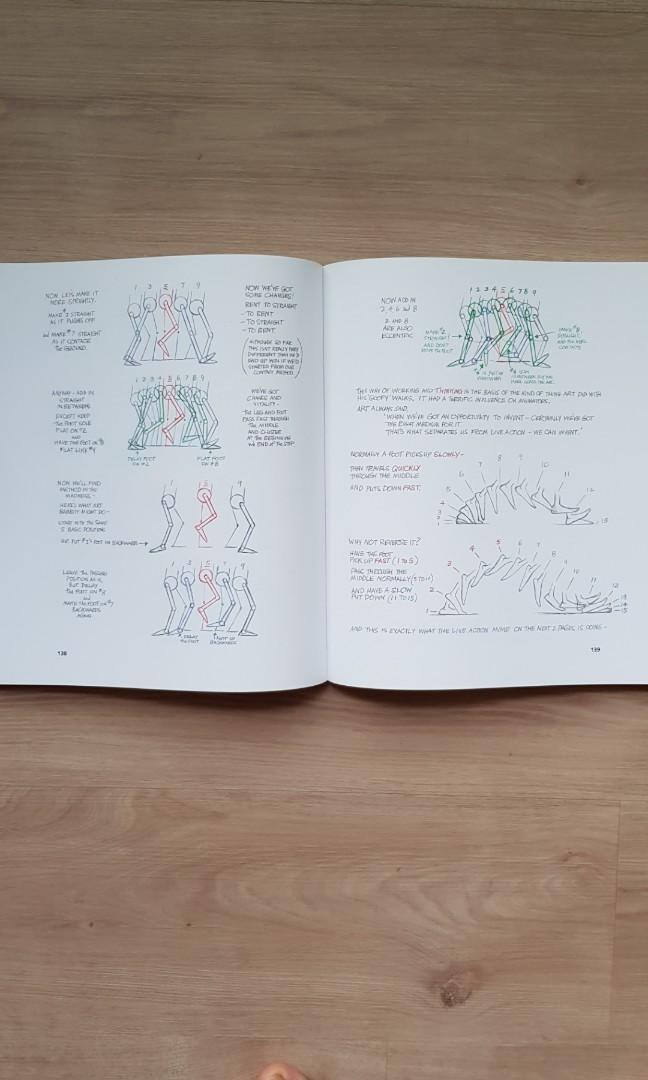 NOW LET'S MAKE IT
MORE SPRIGHTLY.
MAKE #3 STRAIGHT
AS IT PUSHES OFF
AND MAKE #7 STRAIGHT
AS IT CONTACTS
THE GROUND.
1 3 5 7 9
NOW WE'VE GOT
SOME CHANGES!
BENT TO STRAIGHT
- TO BENT
- TO STRAIGHT
- TO BENT.
(ALTHOUGH SO FAR
THIS ISN'T REALLY VERY
DIFFERENT THAN WE'D
END UP WITH IF WE'D
STARTED FROM OUR
CONTACT METHOD.)
ANYWAY - ADD IN
STRAIGHT
INBETWEENS
EXCEPT KEEP
THE FOOT SOLE
FLAT ON #2
AND
HAVE THE FOOT ON #8
FLAT LIKE #9
1 2 3 4 5 6 7 8 9
DELAY FOOT
ON #2
FLAT FOOT
ON #8
WE'VE GOT
CHANGE AND
VITALITY -
THE LEG AND FOOT
PASS FAST THROUGH
THE MIDDLE
AND CLUSTER
AT THE BEGINNING
AND END OF THE STEP
NOW WE'LL FIND
METHOD IN THE
MADNESS -
HERE'S WHAT ART
BABBITT MIGHT DO -
START WITH THE SAME
3 BASIC POSITIONS
BUT PUT #1'S FOOT IN BACKWARDS →
1 5 9
LEAVE THE PASSING
POSITION AS IS,
BUT DELAY
THE FOOT ON #3
AND
MAKE THE FOOT ON #7
BACKWARDS
AGAIN.
1 3 5 7 9
DELAY
THE FOOT
FOOT UP
BACKWARDS
138
NOW ADD IN
2, 4, 6 AND 8
2 AND 8
ARE ALSO
ECCENTRIC
1 2 3 4 5 6 7 8 9
MAKE #2
STRAIGHT
AND DON'T
MOVE THE FOOT
THIS WAY OF WORKING AND THINKING IS THE BASIS OF THE KIND OF THING ART DID WITH
HIS 'GOOFY' WALKS. IT HAD A TERRIFIC INFLUENCE ON ANIMATORS.
ART ALWAYS SAID,
'WHEN WE'VE GOT AN OPPORTUNITY TO INVENT - CERTAINLY WE'VE GOT
THE RIGHT MEDIUM FOR IT.
THAT'S WHAT SEPARATES US FROM LIVE ACTION - WE CAN INVENT.'
NORMALLY A FOOT PICKS UP SLOWLY -
THEN TRAVELS QUICKLY
THROUGH THE MIDDLE
AND PUTS DOWN FAST.
1 2 3 4 5 6 7 8 9 10 11 12 13
WHY NOT REVERSE IT?
HAVE THE FOOT
PICK UP FAST (1 TO 5)
PASS THROUGH THE
MIDDLE NORMALLY (5 TO 11)
AND HAVE A SLOW
PUT DOWN (11 TO 15)
1 2 3 4 5 6 7 8 9 10 11 12 13 14 15
AND THIS IS EXACTLY WHAT THE LIVE ACTION MIME ON THE NEXT 2 PAGES IS DOING -
139